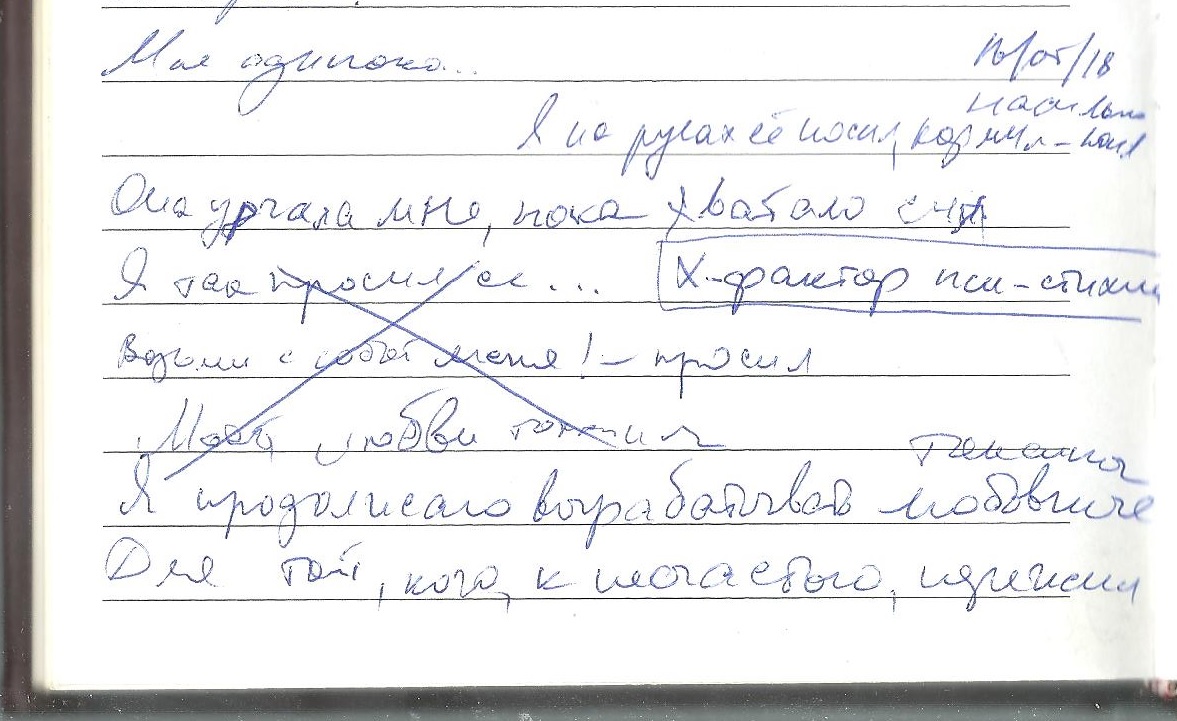 Мне одиноко...
насильно
Я на руках её носил, кормил-поил
Она урчала мне, пока хватало сил
Я так просился... Х-фактор пси-стихии
Возьми с собой меня! - просил
Моей любви
Я продолжаю вырабатывать любовные
Для той, кого, к несчастью, пережил